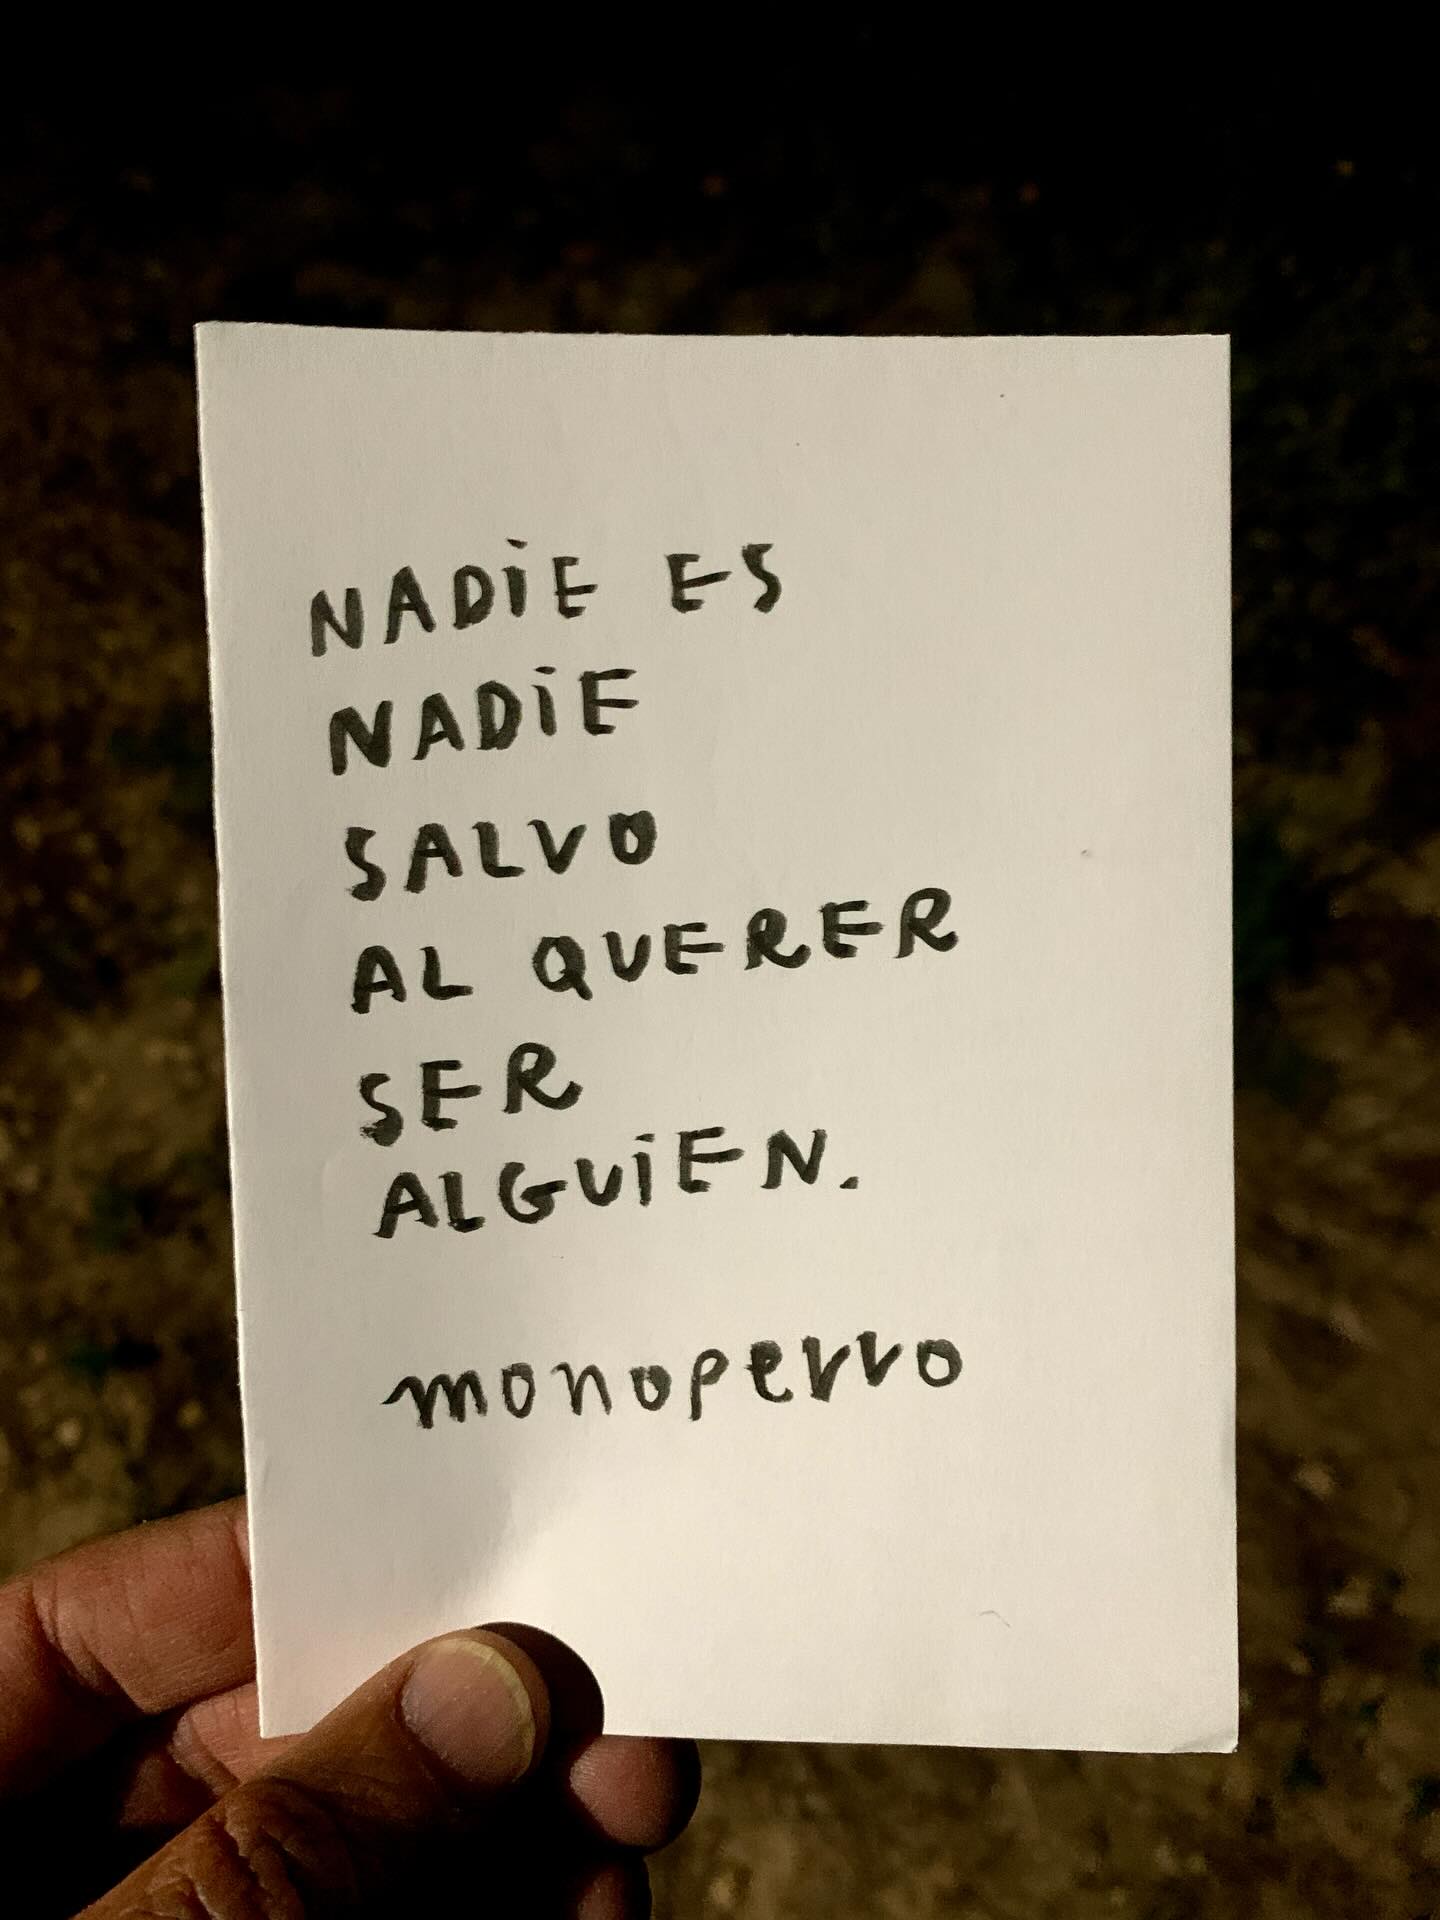 NADiE ES
NADiE
SALVO
AL QUERER
SER
ALGUiEN.
monoperro